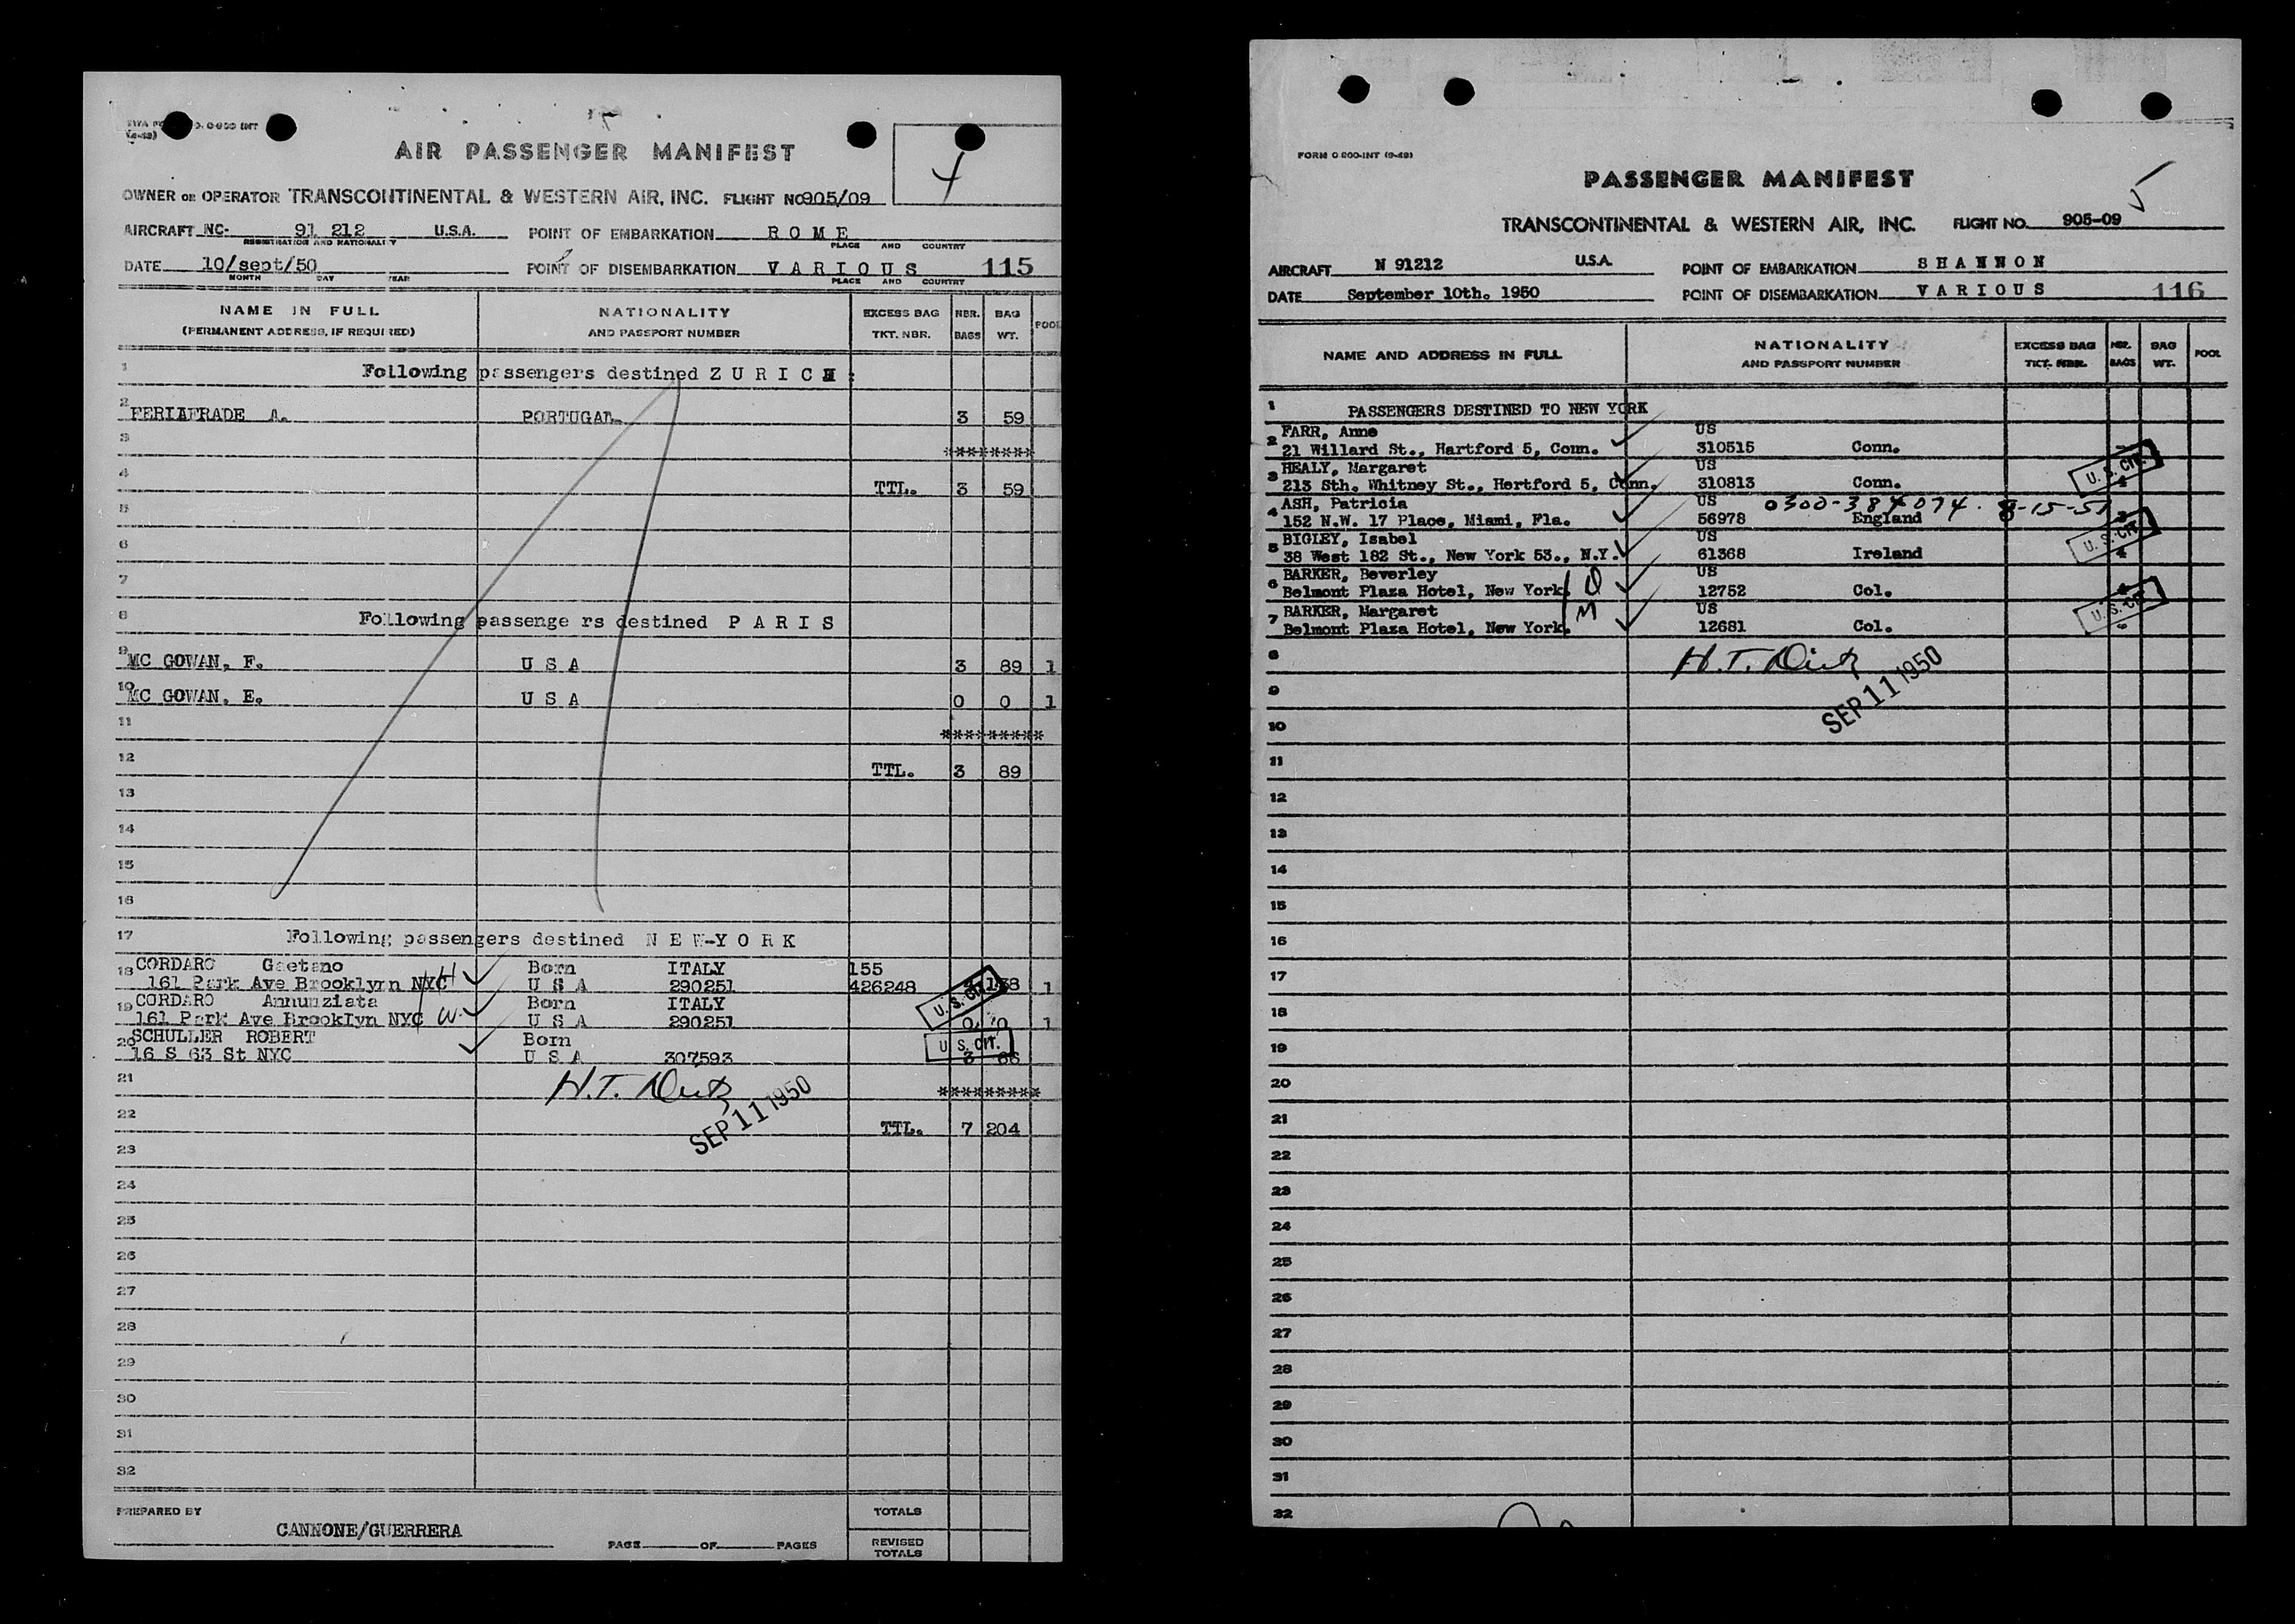 4
AIR PASSENGER MANIFEST
OWNER OR OPERATOR TRANSCONTINENTAL & WESTERN AIR, INC. FLIGHT NO 905/09
AIRCRAFT NC- 91 212 U.S.A. POINT OF EMBARKATION R O M E
REGISTRATION AND NATIONALITY PLACE AND COUNTRY
DATE 10/sept/50 POINT OF DISEMBARKATION V A R I O U S 115
MONTH DAY YEAR PLACE AND COUNTRY
NAME IN FULL NATIONALITY EXCESS BAG NBR. BAG POOL
(PERMANENT ADDRESS, IF REQUIRED) AND PASSPORT NUMBER TKT. NBR. BAGS WT.
1 Following passengers destined Z U R I C H :
2 FERIAFRADE A. PORTUGAL 3 59
3 ********
4 TTL. 3 59
5
6
7
8 Following passenge rs destined P A R I S
9 MC GOWAN, F. U S A 3 89 1
10 MC GOWAN, E. U S A 0 0 1
11 *********
12 TTL. 3 89
13
14
15
16
17 Following passengers destined N E W-Y O R K
18 CORDARO Gaetano Born ITALY 155
161 Park Ave Brooklynn NYC H U S A 290251 426248 138 1
19 CORDARO Annunziata Born ITALY
161 Park Ave Brooklyn NYC W. U S A 290251 0 0 1
U. S. CIT.
20 SCHULLER ROBERT Born
16 S 63 St NYC U S A 307593 3 66
U S. CIT.
21 *********
SEP 11 1950
22 TTL. 7 204
23
24
25
26
27
28
29
30
31
32
PREPARED BY TOTALS
CANNONE/GUERRERA
PAGE OF PAGES REVISED TOTALS
FORM O 800-INT (9-48)
5
PASSENGER MANIFEST
TRANSCONTINENTAL & WESTERN AIR, INC. FLIGHT NO. 905-09
AIRCRAFT N 91212 U.S.A. POINT OF EMBARKATION S H A N N O N
DATE September 10th. 1950 POINT OF DISEMBARKATION V A R I O U S 116
NAME AND ADDRESS IN FULL NATIONALITY EXCESS BAG NBR. BAG POOL
AND PASSPORT NUMBER TKT. NBR. BAGS WT.
1 PASSENGERS DESTINED TO NEW YORK
2 FARR, Anne US
21 Willard St., Hartford 5, Conn. 310515 Conn.
3 HEALY, Margaret US
213 Sth. Whitney St., Hartford 5, Conn. 310813 Conn.
U. S. CIT.
4 ASH, Patricia US 0300-384074. 8-15-51
152 N.W. 17 Place, Miami, Fla. 56978 England
5 BIGLEY, Isabel US
38 West 182 St., New York 53., N.Y. 61368 Ireland
U. S. CIT.
6 BARKER, Beverley US
Belmont Plaza Hotel, New York. D 12752 Col.
7 BARKER, Margaret M US
Belmont Plaza Hotel, New York. 12681 Col.
U. S. CIT.
8
SEP 11 1950
9
10
11
12
13
14
15
16
17
18
19
20
21
22
23
24
25
26
27
28
29
30
31
32